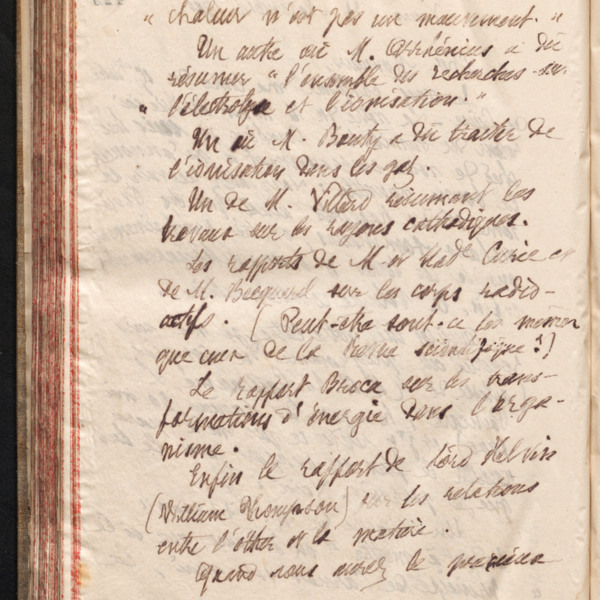 " chaleur n'est pas un mouvement. "
Un autre où M. Arrhénius a dû
résumer " l'ensemble des recherches sur
" l'électrolyse et l'ionisation. "
Un où M. Bouty a dû traiter de
l'ionisation dans les gaz.
Un de M. Villard résumant les
travaux sur les rayons cathodiques.
Les rapports de M et Made Curie et
de M. Becquerel sur les corps radio-
actifs. (Peut-être sont-ce les mêmes
que ceux de la Revue scientifique ?)
Le rapport Broca sur les trans-
formations d'énergie dans l'orga-
nisme.
Enfin le rapport de Lord Kelvin
(William Thompson) sur les relations
entre l'éther et la matière.
Quand vous aurez le